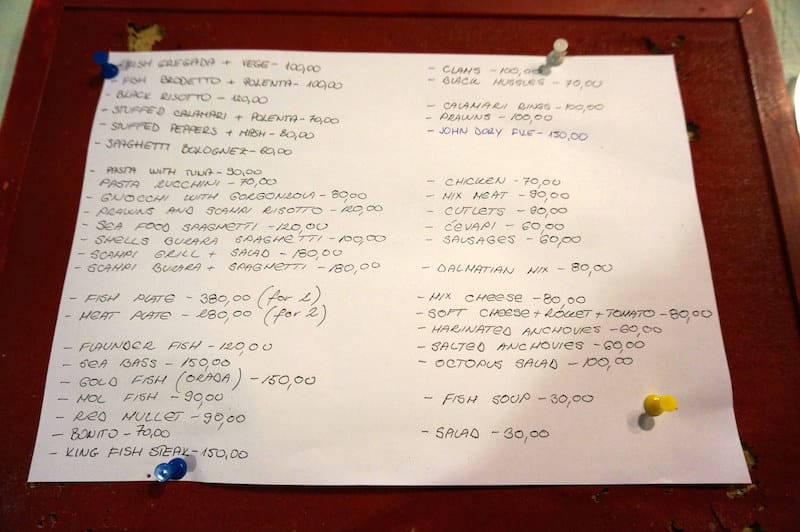 - FISH GREGADA + VEGE - 100,00
- FISH BRODETTO + POLENTA - 100,00
- BLACK RISOTTO - 120,00
- STUFFED CALAMARI + POLENTA - 70,00
- STUFFED PEPPERS + MESH - 80,00
- SPAGHETTI BOLOGNEZ - 60,00
- PASTA WITH TUNA - 90,00
PASTA RUCCHINI - 70,00
- GNOCCHI WITH GORGONZOLA - 80,00
- PRAWNS AND SCAMPI RISOTTO - 120,00
- SEA FOOD SPAGHETTI - 120,00
- SHELLS BUZARA SPAGHETTI - 100,00
- SCAMPI GRILL + SALAD - 180,00
- SCAMPI BUZARA + SPAGHETTI - 180,00
- FISH PLATE - 380,00 (for 2)
- MEAT PLATE - 280,00 (for 2)
- FLAUNDER FISH - 120,00
- SEA BASS - 150,00
- GOLD FISH (ORADA) - 150,00
- MOL FISH - 90,00
- RED MULLET - 90,00
- BONITO - 70,00
- KING FISH STEAK - 150,00
- CLAMS - 100,00
- BLACK MUSSLES - 70,00
- CALAMARI RINGS - 100,00
- PRAWNS - 100,00
- JOHN DORY FILE - 150,00
- CHICKEN - 70,00
- MIX MEAT - 90,00
- CUTLETS - 80,00
- ĆEVAPI - 60,00
- SAUSAGES - 60,00
- DALMATIAN MIX - 80,00
- MIX CHEESE - 80,00
- SOFT CHEESE + ROCKET + TOMATO - 80,00
- MARINATED ANCHOVIES - 60,00
- SALTED ANCHOVIES - 60,00
- OCTOPUS SALAD - 100,00
- FISH SOUP - 30,00
- SALAD - 30,00